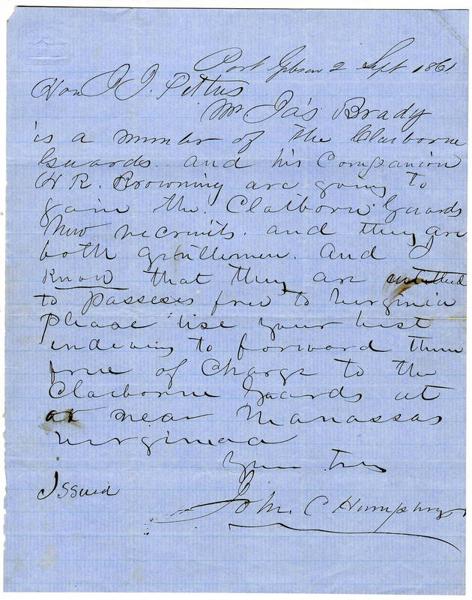 Port Gibson 2 Sept 1861
Hon J J. Pettus
Mr Ja's Brady
is a member of the Claiborne
Guards. and his Companion
H R. Browning are going to
join the Claiborne Guards
New recruits. and they are
both gentlemen. And I
Know that they are entitled
to passeses free to Virginia
Please use your best
indeavors to forward them
free of Charge to the
Claiborne Guards at
or near Manassas
Virginiaa
Yours Truly
Issued
John. C Humphreys